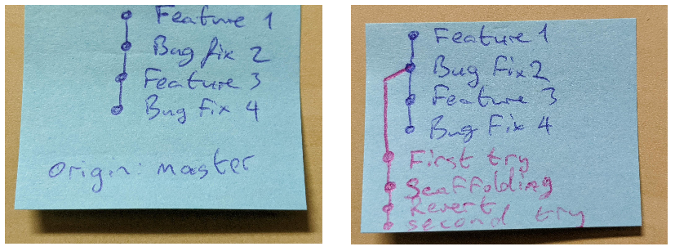 Feature 1
Bug fix 2
Feature 3
Bug Fix 4
Origin: master
Feature 1
Bug Fix 2
Feature 3
Bug Fix 4
First try
Scaffolding
Revert
second try